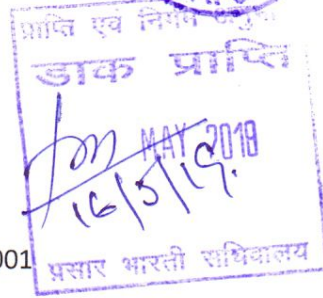 प्राप्ति एवं निर्गम
डाक प्राप्ति
MAY 2019
16/5/19.
001
प्रसार भारती सचिवालय